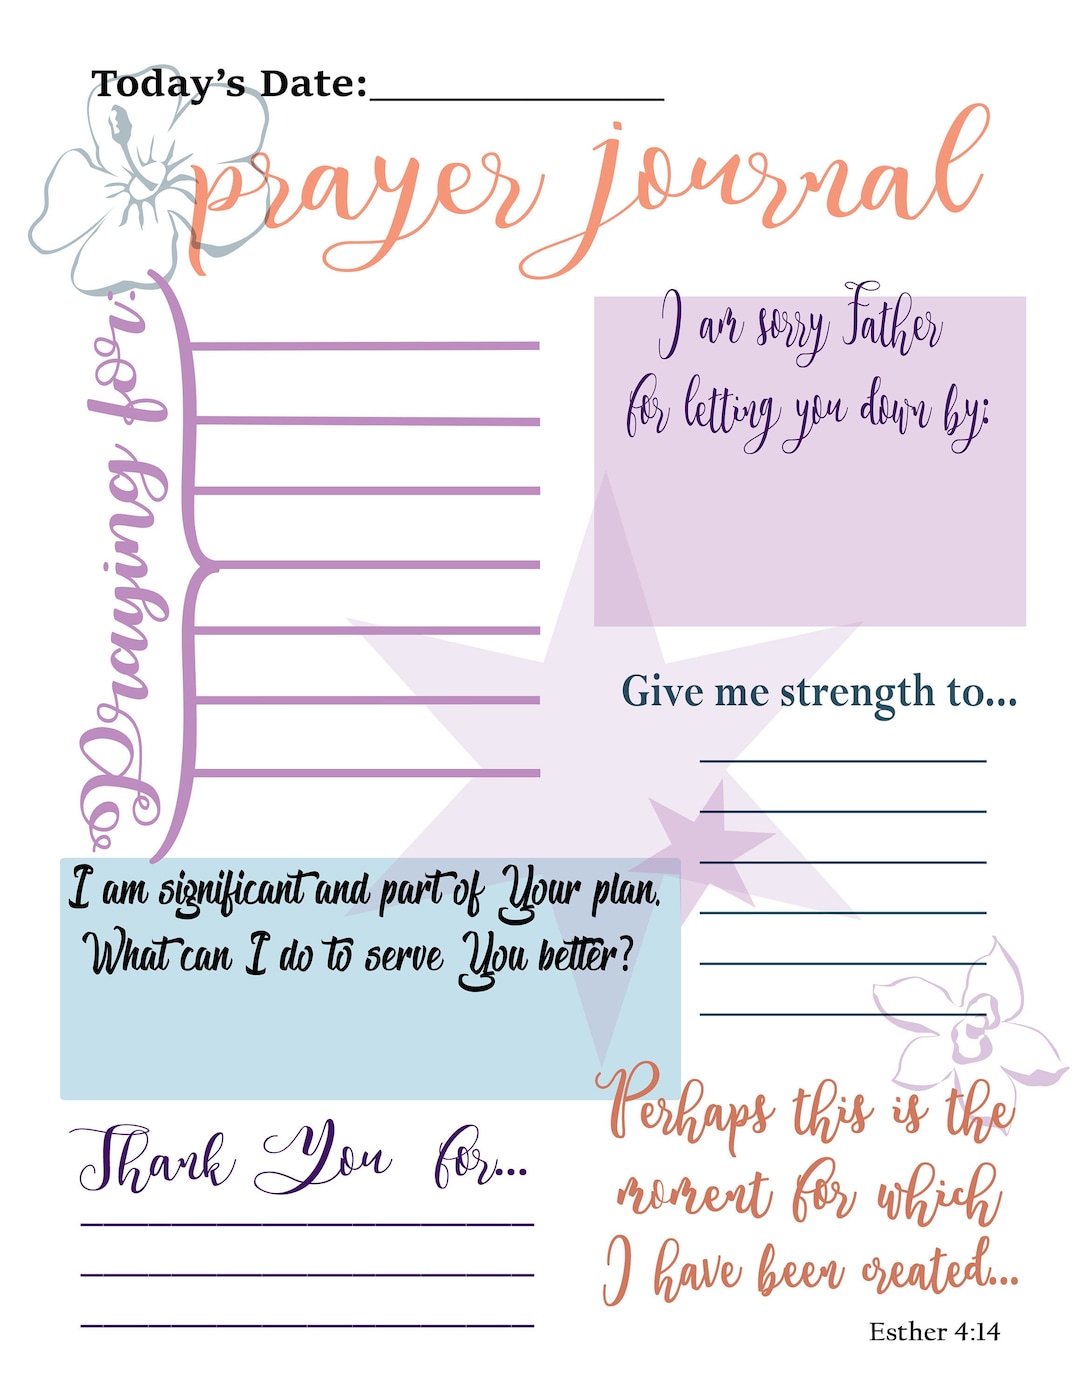 Today's Date:
prayer journal
Praying for:
I am sorry Father
for letting you down by:
Give me strength to...
I am significant and part of Your plan.
What can I do to serve You better?
Thank You for...
Perhaps this is the
moment for which
I have been created...
Esther 4:14